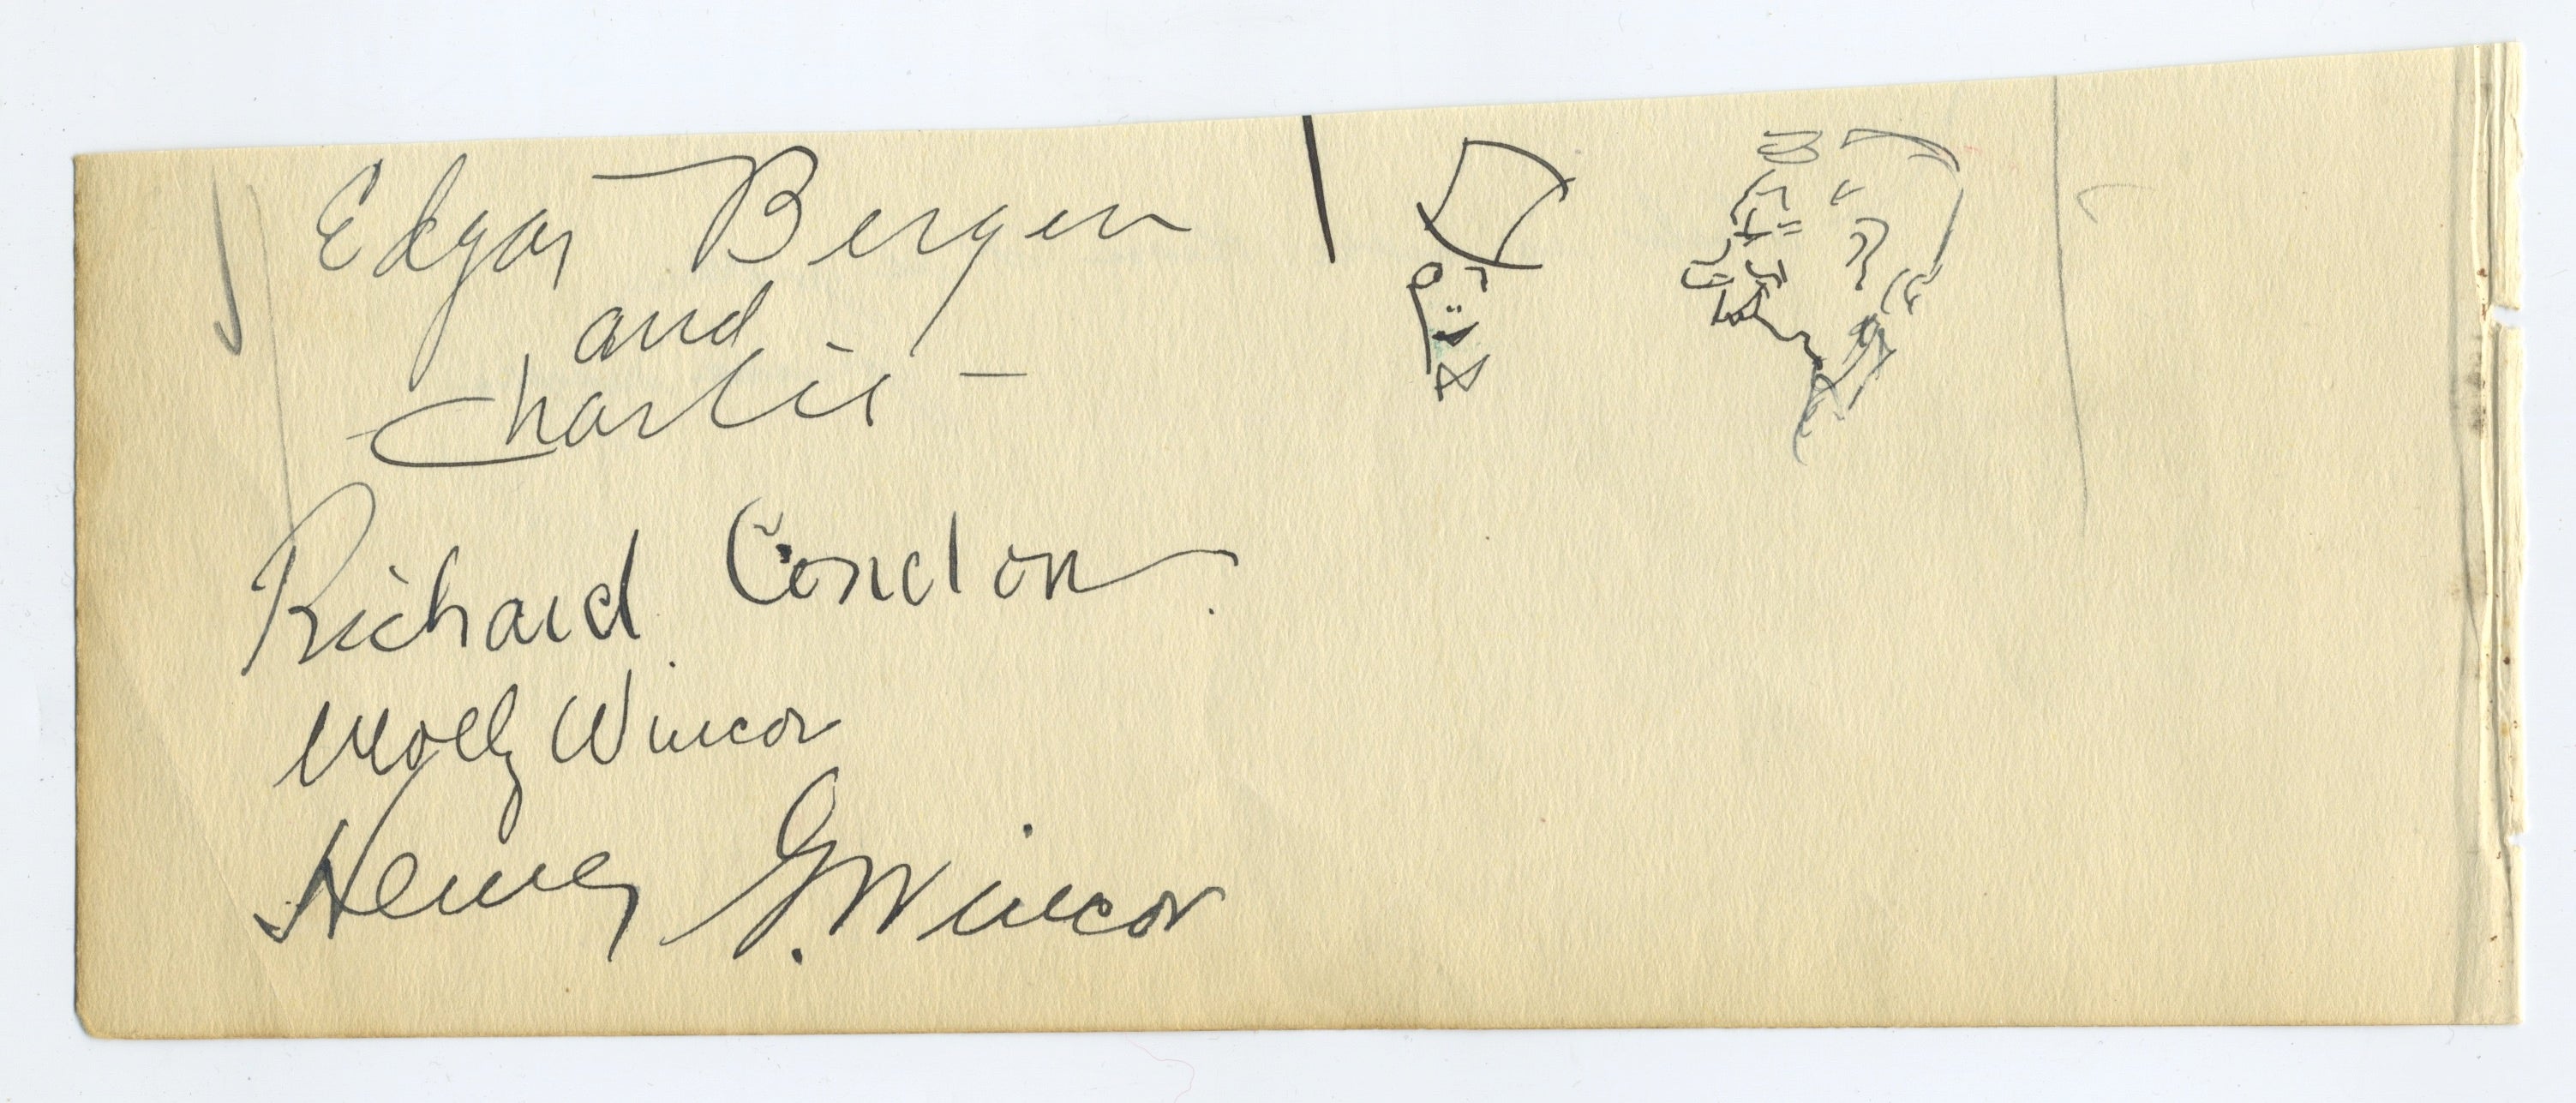 Edgar Bergen
and
Charlie –
Richard Condon.
Molly Wincor
Henry G. Wincor